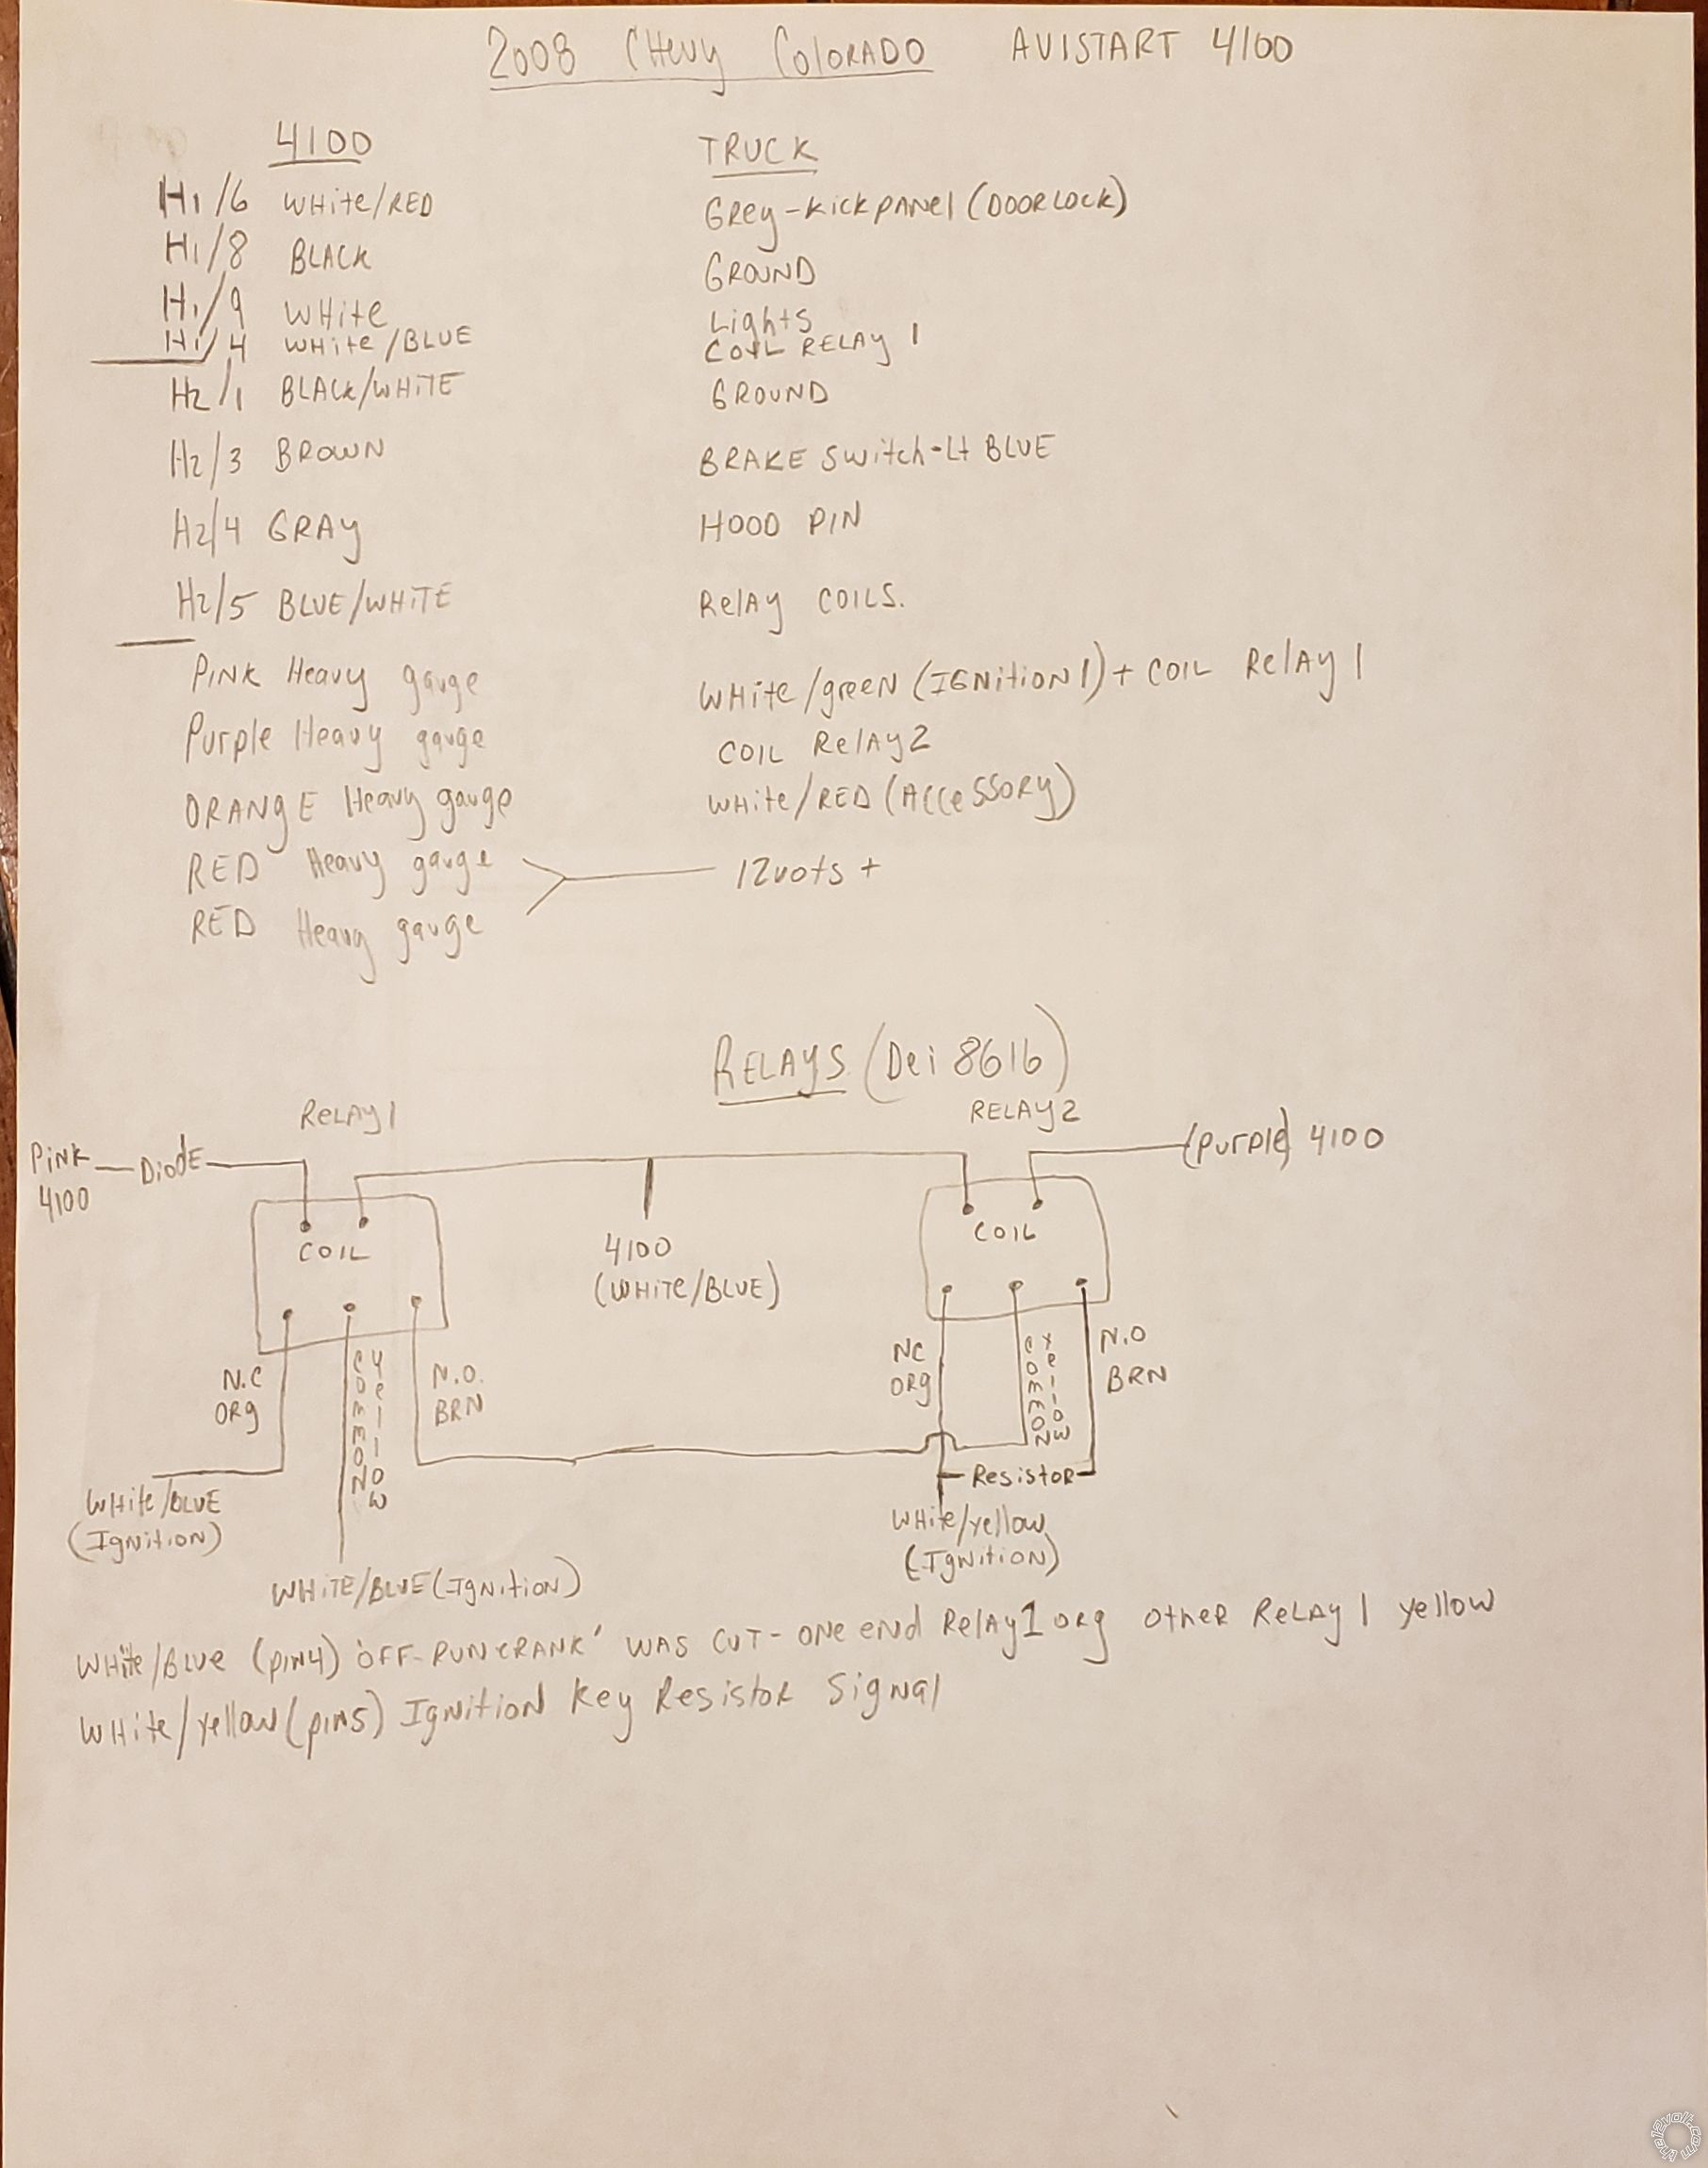 2008 CHevy ColoRADO AVISTART 4100
4100 TRUCK
H1/6 WHite/RED GRey-KickPANel (DOORLOCK)
H1/8 BLACK GROUND
H1/9 WHite Lights
H1/4 WHite/BLUE COIL RELAY 1
H2/1 BLACK/WHITE GROUND
H2/3 BROWN BRAKE Switch-Lt BLUE
H2/4 GRAy HOOD PIN
H2/5 BLUE/WHITE Relay COILS.
PiNK Heavy gauge WHite/green (IGNitioN1) + COIL Relay 1
Purple Heavy gauge COIL Relay2
ORANgE Heavy gauge WHite/RED (Accessory)
RED Heavy gauge 12vots +
RED Heavy gauge
RELAYS (Dei 8616)
RELAY1 RELAY2
PiNK DiodE (Purple) 4100
4100
COIL COIL
4100
(WHITE/BLUE)
N.C COMMON yellow N.O. NC COMMON yellow N.O
ORg BRN ORg BRN
Resistor
WHite/BLUE WHite/yellow
(Ignition) (Ignition)
WHITE/BLUE (Ignition)
WHite/BLUE (pin4) 'OFF-RUN-CRANK' WAS CUT- ONE end Relay1 ORg OtheR ReLAy 1 yelloW
WHite/yellow (pin5) Ignition Key Resistor Signal
the12volt.com